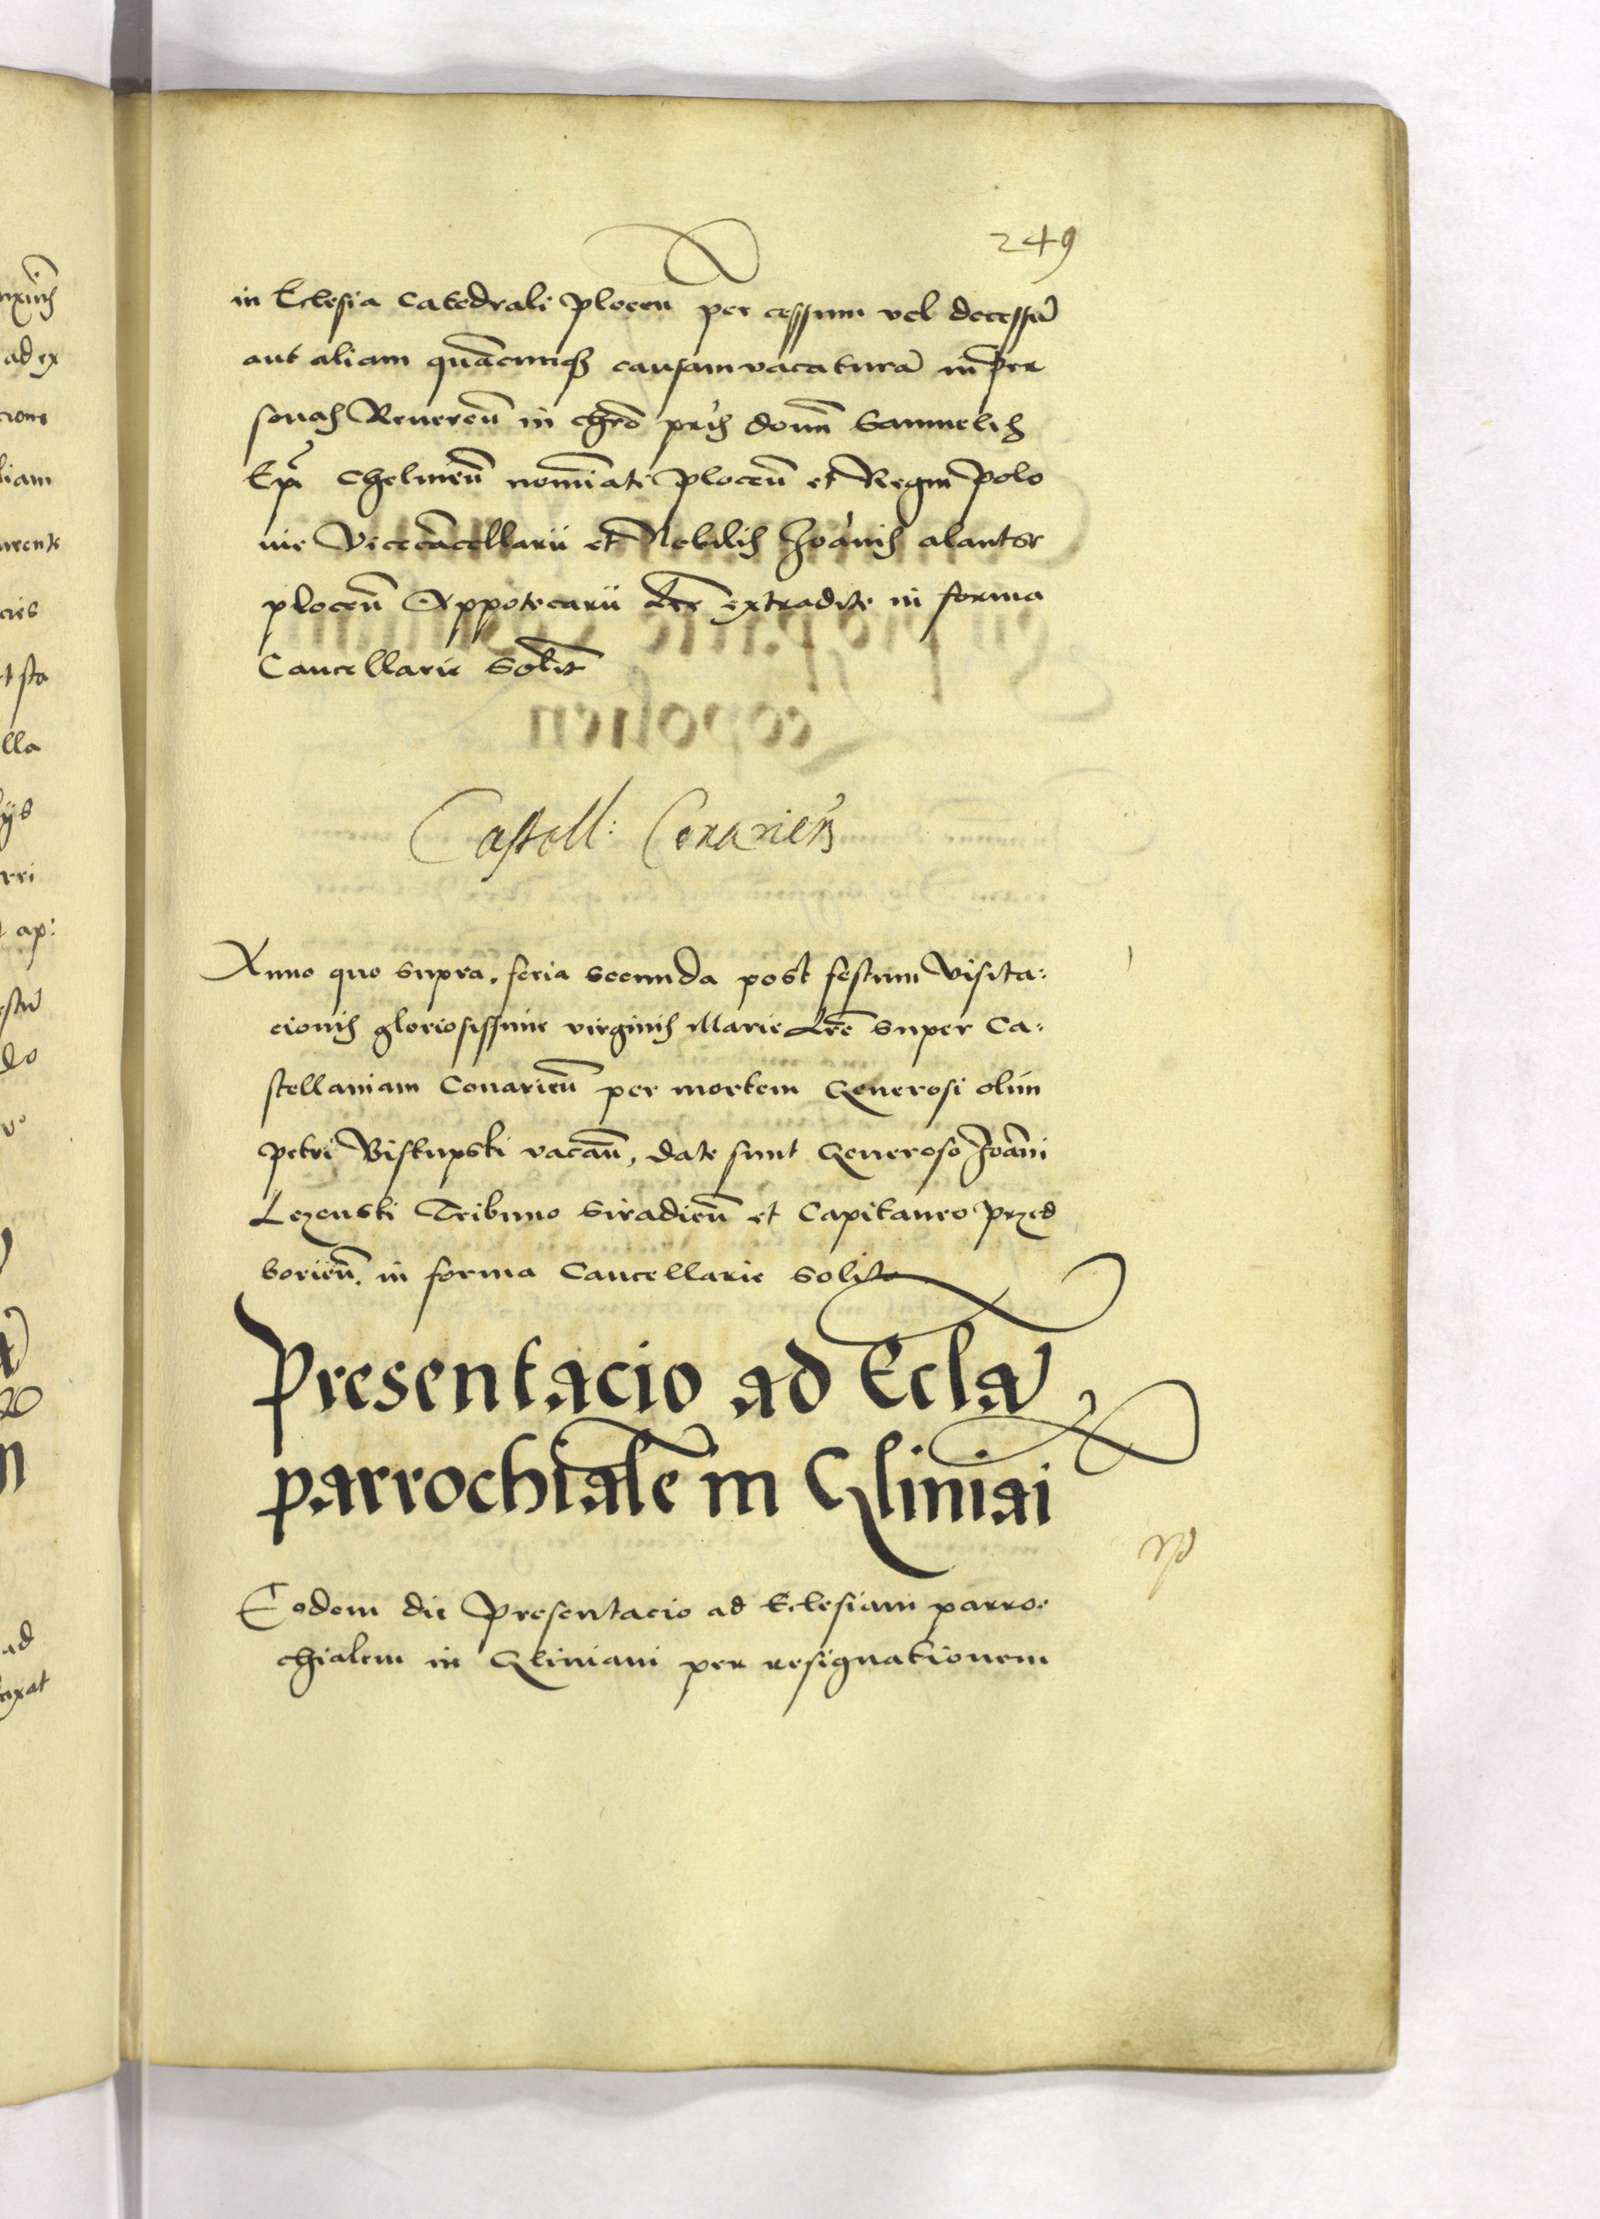 249
in Eclesia Catedrali Plocen per cessum vel decessũ
aut aliam quãcumq3 causam vacaturã in per
sonas Reverenñ in chro pris domñ Samuelis
Epi Chelmeñ nomiñati Ploceñ et Regni Polo
nie Vicecãcellarii et Nobilis Joãnis alantse
ploceñ Appotecarii lre extradite in forma
Cancellarie solit
Castell: Conarieñ
Anno quo supra, feria secunda post festum Visita:
cionis gloriosissime virginis Marie Lre super Ca:
stellaniam Conarieñ per mortem Generosi olim
Petri Biskupski vacañ, date sunt Generoso Joãni
Lezenski Tribuno Siradieñ et Capitaneo przed
borieñ. in forma Cancellarie solita
Presentacio ad Eclã
parrochialẽ in Gliniai
Eodem die Presentacio ad Eclesiam parro:
chialem in Gliniani per resignationem